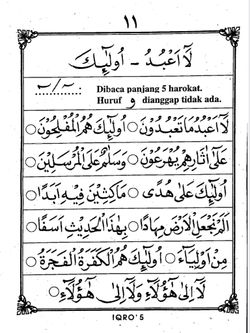 ١١
لَآ اَعْبُدُ - اُولٰٓئِكَ
Dibaca panjang 5 harokat.
Huruf و dianggap tidak ada.
لَآ اَعْبُدُ مَا تَعْبُدُوْنَ ○ اُولٰٓئِكَ هُمُ الْمُفْلِحُوْنَ
عَلٰٓى اٰثَارِهِمْ يُهْرَعُوْنَ ○ وَسَلٰمٌ عَلَى الْمُرْسَلِيْنَ
اُولٰٓئِكَ عَلٰى هُدًى ○ مَاكِثِيْنَ فِيْهِ اَبَدًا
اَلَمْ نَجْعَلِ الْاَرْضَ مِهَادًا ○ بِهٰذَا الْحَدِيْثِ اَسَفًا
مِنْ اَوْلِيَآءَ ○ اُولٰٓئِكَ هُمُ الْكَفَرَةُ الْفَجَرَةُ
لَآ اِلٰى هٰٓؤُلَآءِ وَلَآ اِلٰى هٰٓؤُلَآءِ
IQRO'5